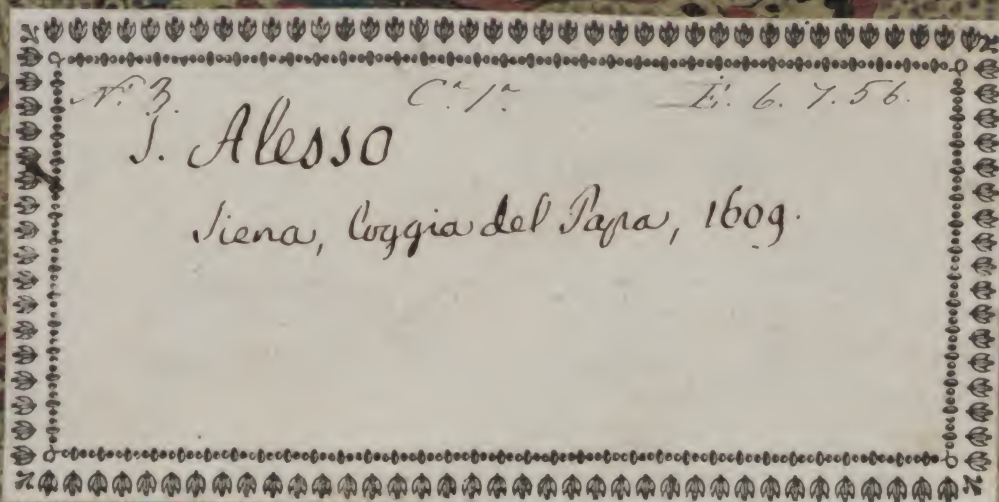 Nº 3. Cª 1ª E. 6. 7. 56.
S. Alesso
Siena, Loggia del Papa, 1609.